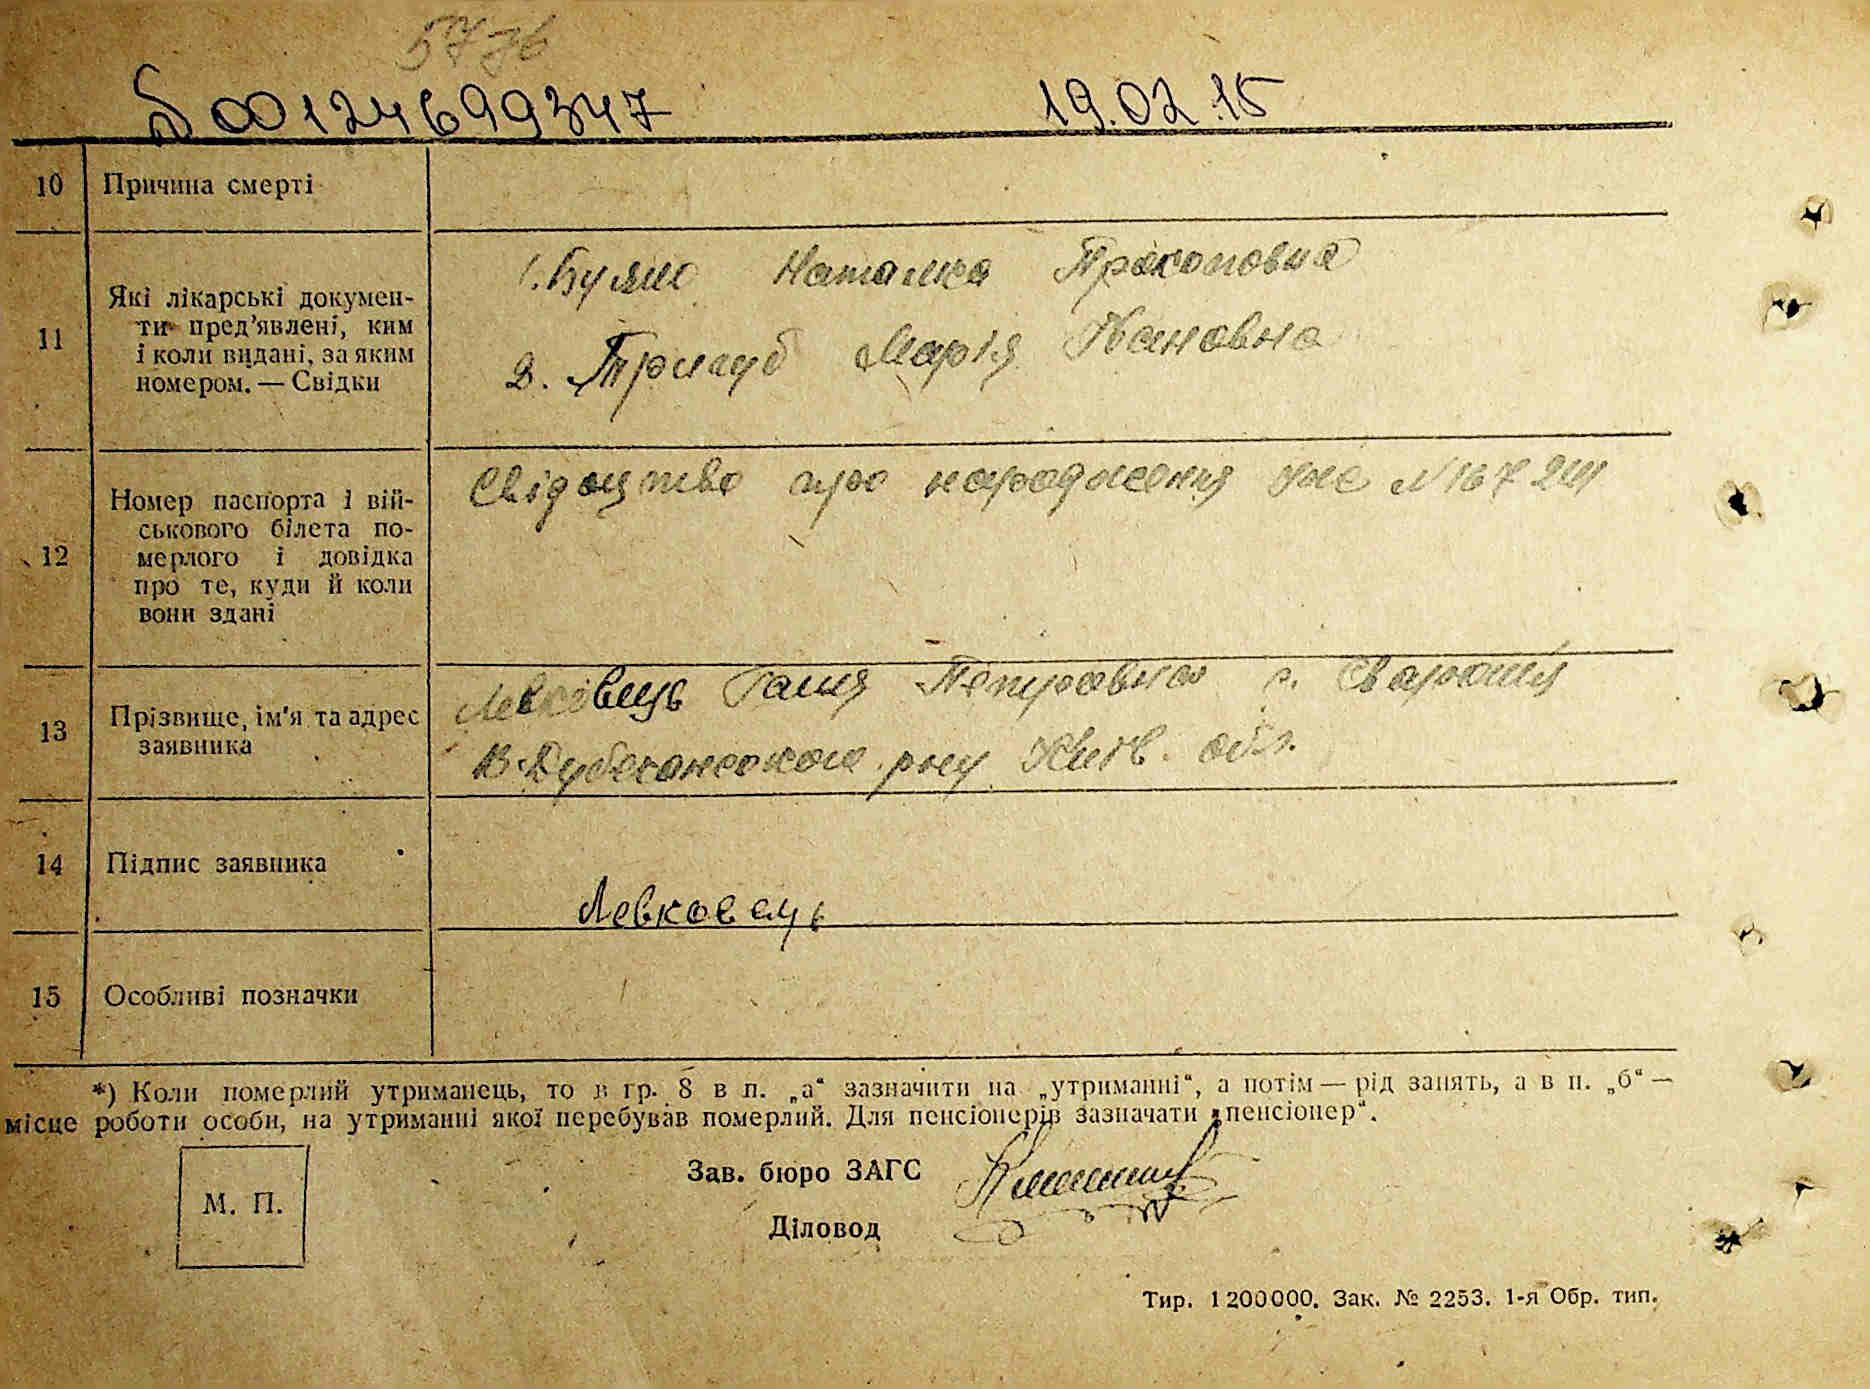 5776
S 00124699347 19.02.15
10 Причина смерті
11 Які лікарські докумен-
ти пред'явлені, ким
і коли видані, за яким
номером. — Свідки
1. Наталка Прокоповна
2. Тригуб Марія Івановна
12 Номер паспорта і вій-
ськового білета по-
мерлого і довідка
про те, куди й коли
вони здані
Свідоцтво про народження №
13 Прізвище, ім'я та адрес
заявника
Левковець Галя Петровна с.
В. Дубечанского р-ну Київ. обл.
14 Підпис заявника
Левковець
15 Особливі позначки
*) Коли померлий утриманець, то в гр. 8 в п. „а“ зазначити на „утриманні“, а потім — рід занять, а в п. „б“ —
місце роботи особи, на утриманні якої перебував померлий. Для пенсіонерів зазначати „пенсіонер“.
Зав. бюро ЗАГС
М. П.
Діловод
Тир. 1200000. Зак. № 2253. 1-я Обр. тип.